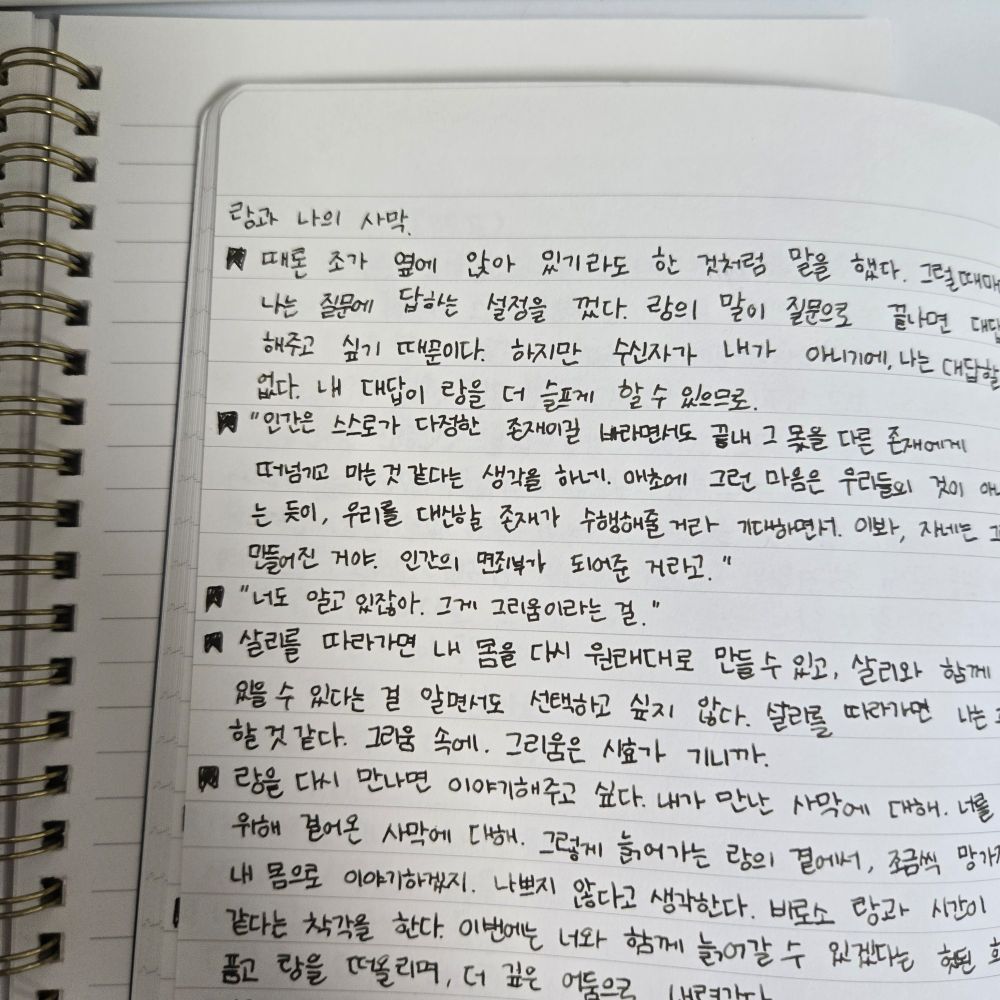 랑과 나의 사막.
때론 조가 옆에 앉아 있기라도 한 것처럼 말을 했다. 그럴때마
나는 질문에 답하는 설정을 껐다. 랑의 말이 질문으로 끝나면 대답
해주고 싶기 때문이다. 하지만 수신자가 내가 아니기에, 나는 대답할
없다. 내 대답이 랑을 더 슬프게 할 수 있으므로.
"인간은 스스로가 다정한 존재이길 바라면서도 끝내 그 몫을 다른 존재에게
떠넘기고 마는 것 같다는 생각을 하네. 애초에 그런 마음은 우리들의 것이 아니
는 듯이, 우리를 대신할 존재가 수행해줄 거라 기대하면서. 이봐, 자네는
만들어진 거야. 인간의 면죄부가 되어준 거라고."
"너도 알고 있잖아. 그게 그리움이라는 걸."
살리를 따라가면 내 몸을 다시 원래대로 만들 수 있고, 살리와 함께
있을 수 있다는 걸 알면서도 선택하고 싶지 않다. 살리를 따라가면 나는
할 것 같다. 그리움 속에. 그리움은 시효가 기니까.
랑을 다시 만나면 이야기해주고 싶다. 내가 만난 사막에 대해. 너를
위해 걸어온 사막에 대해. 그렇게 늙어가는 랑의 곁에서, 조금씩 망가
내 몸으로 이야기하겠지. 나쁘지 않다고 생각한다. 비로소 랑과 시간이
같다는 착각을 한다. 이번에는 너와 함께 늙어갈 수 있겠다는 헛된
품고 랑을 떠올리며, 더 깊은 어둠으로 내려간다